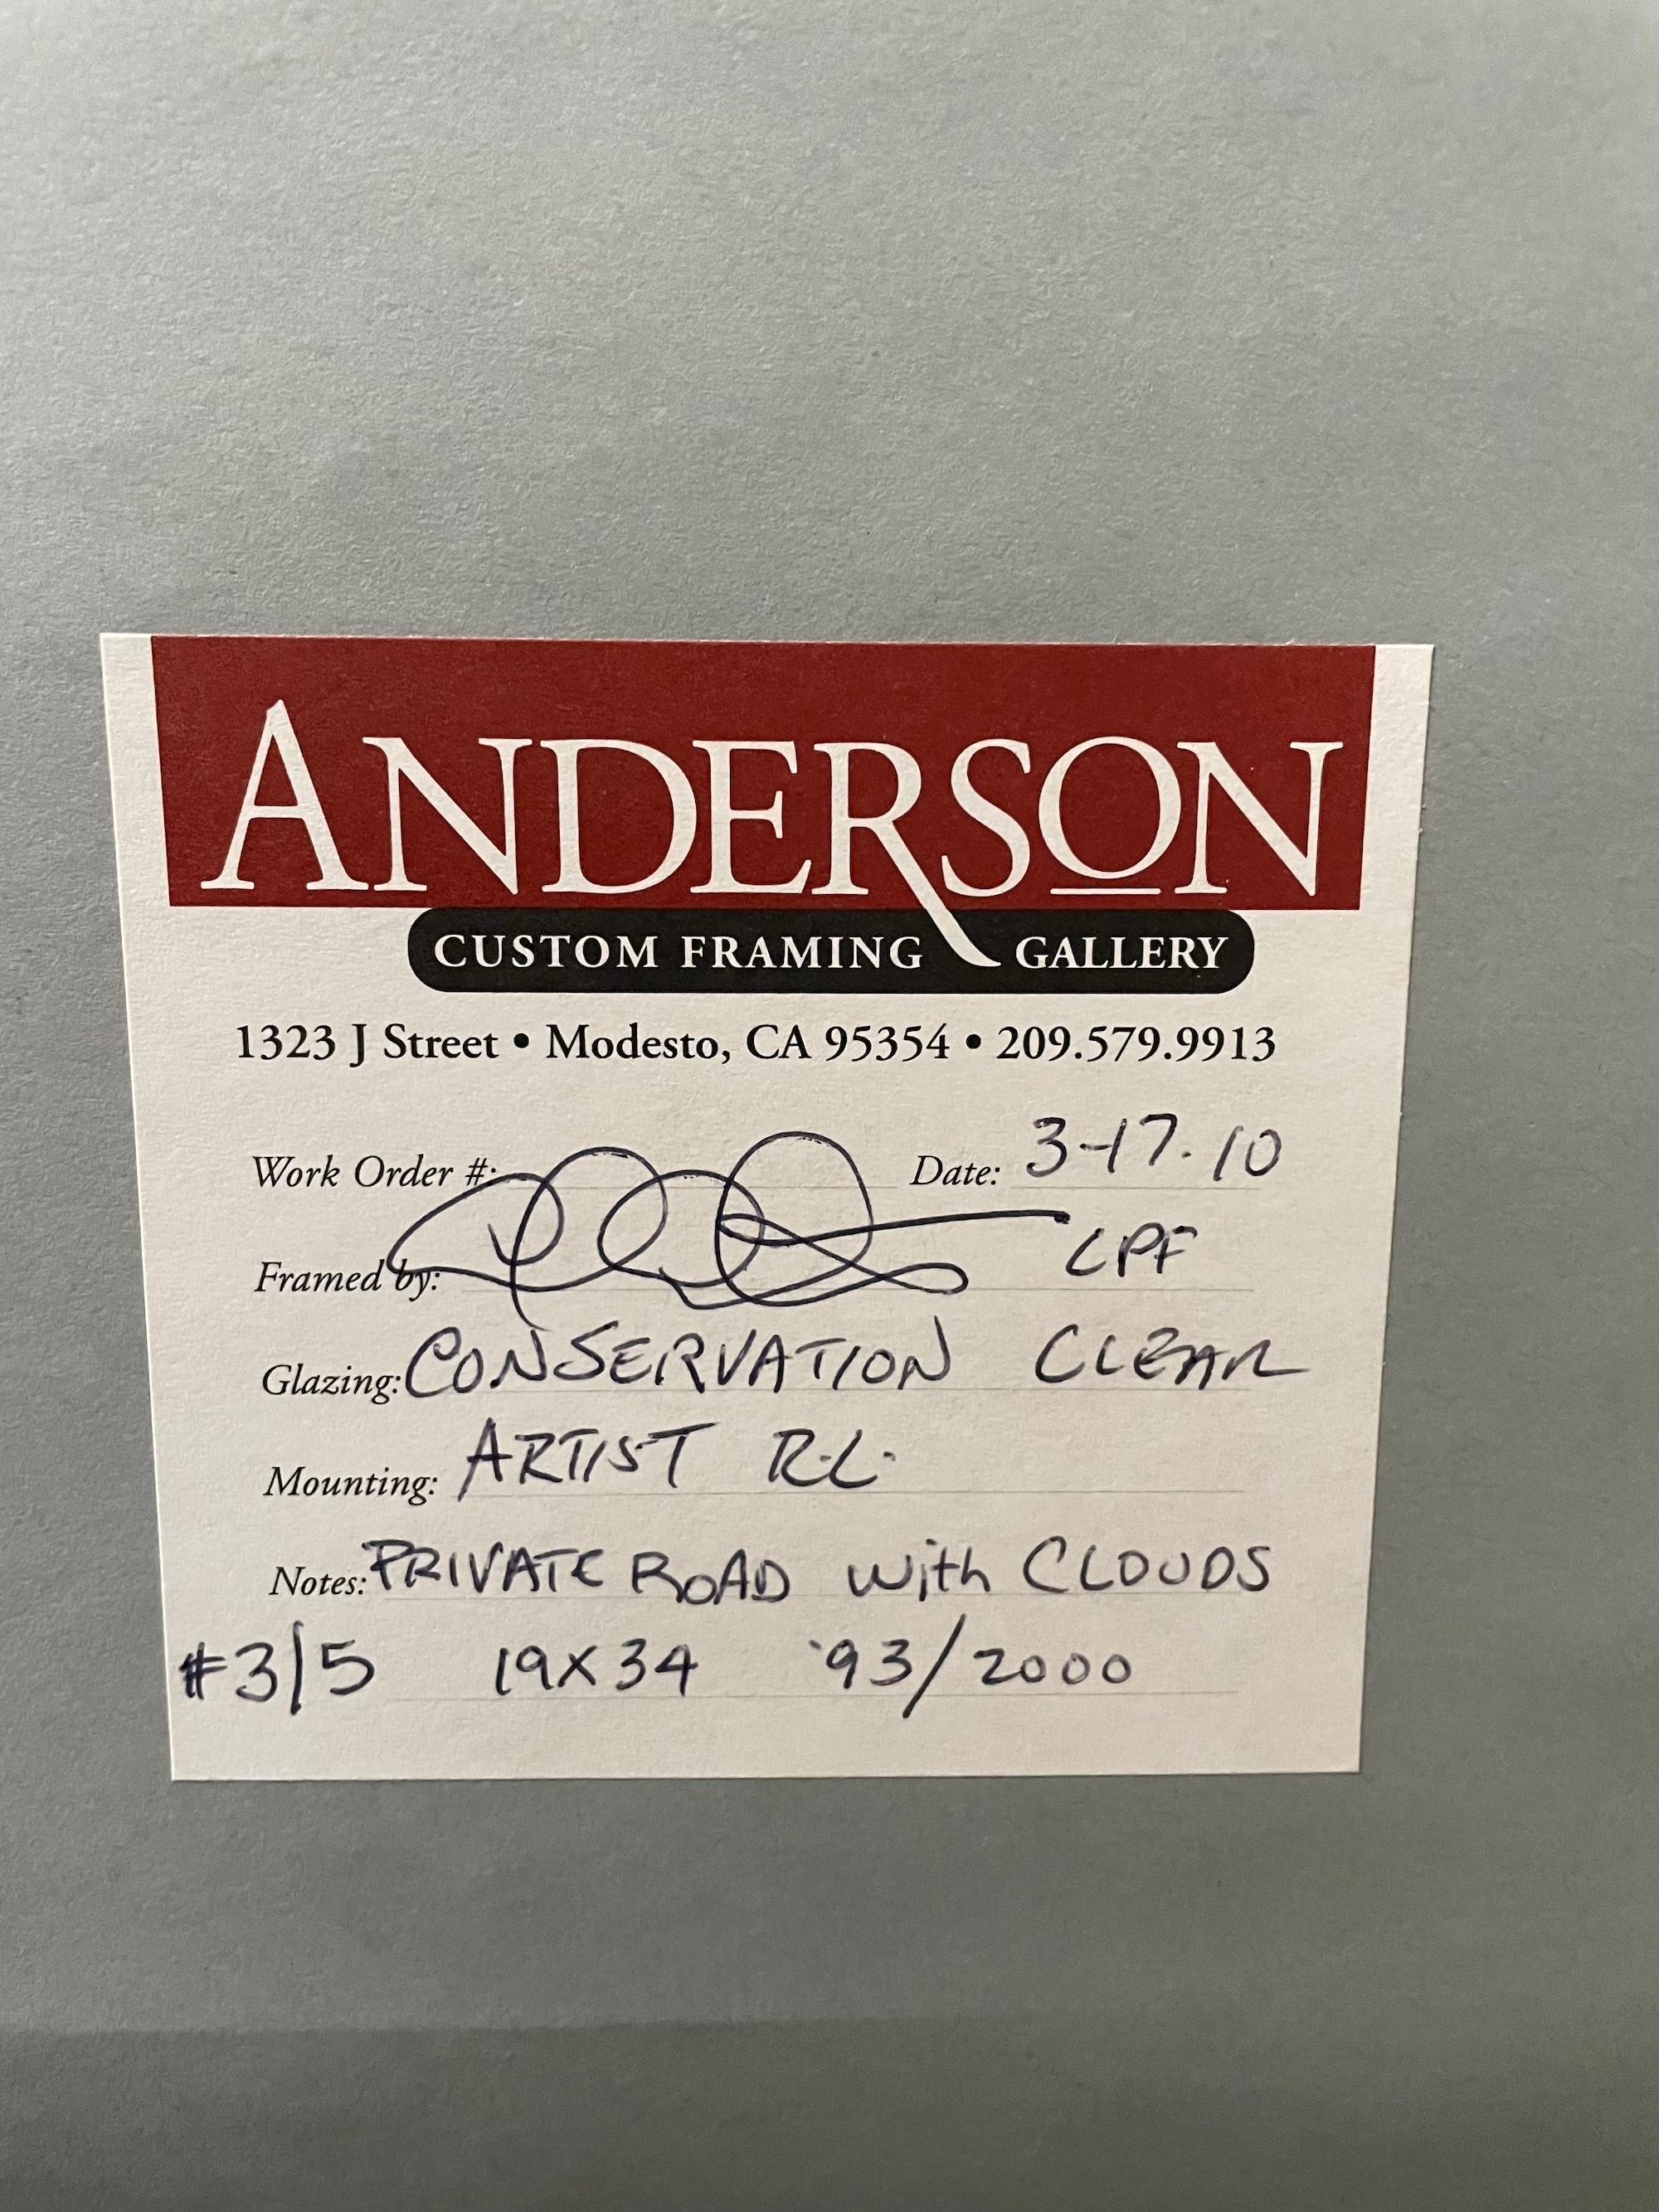 ANDERSON
CUSTOM FRAMING GALLERY
1323 J Street • Modesto, CA 95354 • 209.579.9913
Work Order #: Date: 3-17.10
Framed by: CPF
Glazing: CONSERVATION CLEAR
Mounting: ARTIST R.L.
Notes: PRIVATE ROAD with CLOUDS
#3/5 19X34 '93/2000